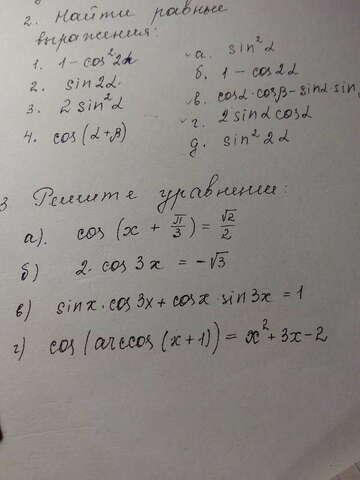 2. Найти равные
выражения:
1. 1 - cos²2α
2. sin2α.
3. 2 sin²α
4. cos(α+β)
а. sin²α
б. 1 - cos2α
в. cosα·cosβ - sinα·sin
г. 2 sinα cosα
д. sin²2α
3 Решите уравнения:
а). cos (x + π/3) = √2/2
б) 2·cos 3x = -√3
в) sinx·cos3x + cosx·sin3x = 1
г) cos(arccos(x+1)) = x² + 3x - 2